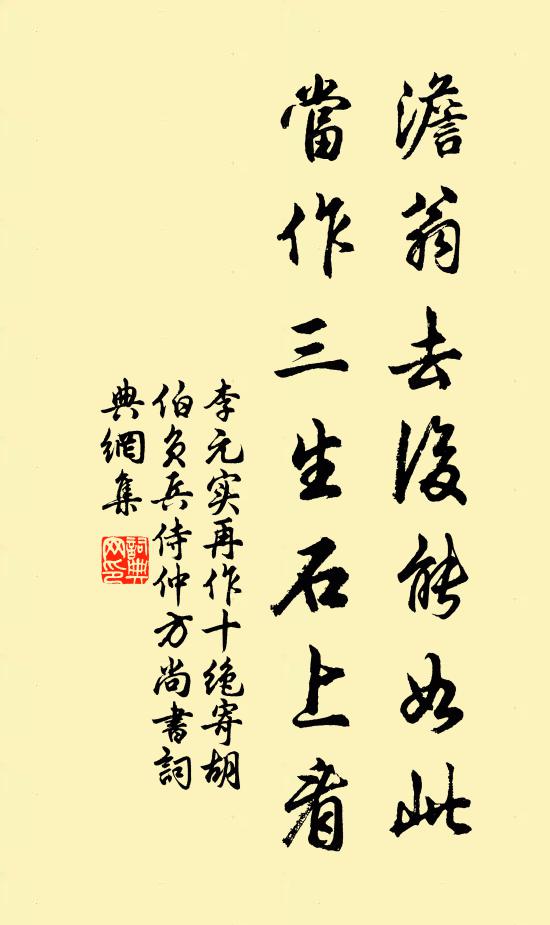 澹翁去後能如此
當作三生石上看
李元实再作十绝寄胡
伯負兵侍仲方尚書詞
典網集
詞典
网印